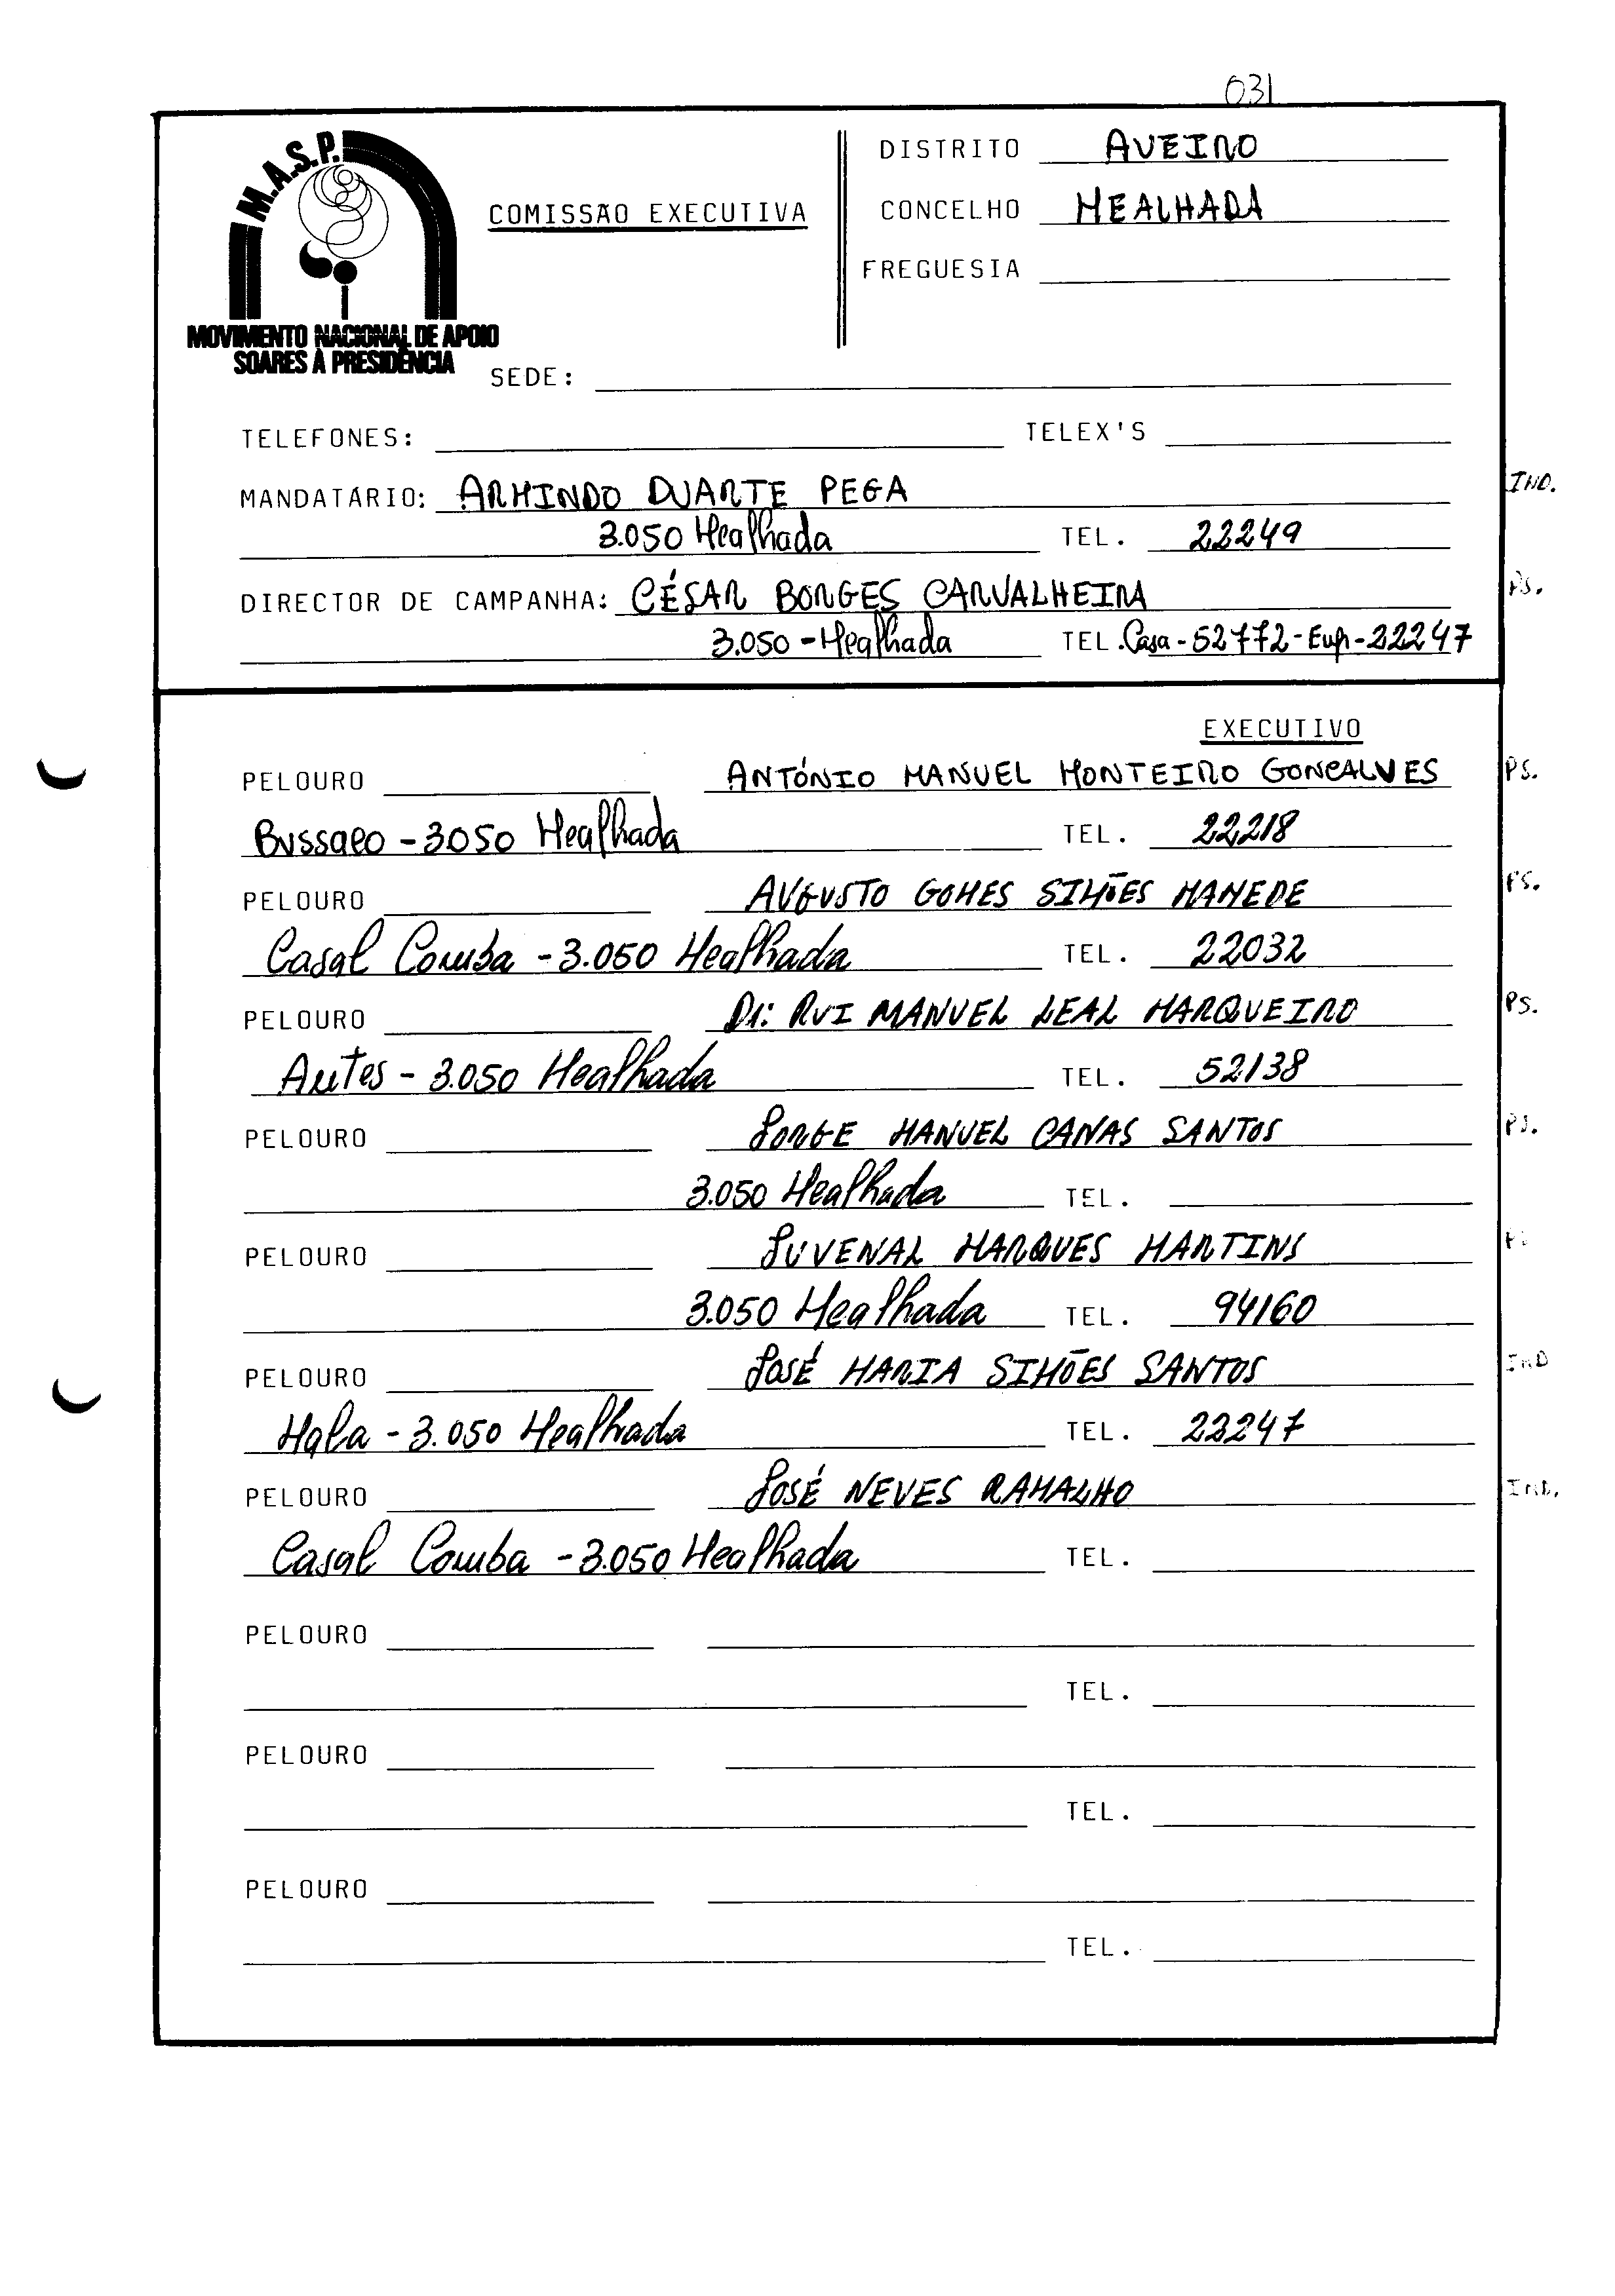 031
M.A.S.P.
MOVIMENTO NACIONAL DE APOIO
SOARES À PRESIDÊNCIA
COMISSÃO EXECUTIVA
DISTRITO AVEIRO
CONCELHO MEALHADA
FREGUESIA
SEDE:
TELEFONES: TELEX'S
MANDATÁRIO: ARMINDO DUARTE PEGA IND.
3.050 Mealhada TEL. 22249
DIRECTOR DE CAMPANHA: CÉSAR BORGES CARVALHEIRA PS.
3.050 - Mealhada TEL. Casa - 52772 - Emp - 22247
EXECUTIVO
PELOURO ANTÓNIO MANUEL MONTEIRO GONCALVES PS.
Bussaco - 3050 Mealhada TEL. 22218
PELOURO AUGUSTO GOMES SIMÕES MAMEDE PS.
Casal Comba - 3.050 Mealhada TEL. 22032
PELOURO Dr: RUI MANUEL LEAL MARQUEIRO PS.
Antes - 3.050 Mealhada TEL. 52138
PELOURO JORGE MANUEL CANAS SANTOS PS.
3.050 Mealhada TEL.
PELOURO JUVENAL MARQUES MARTINS PS
3.050 Mealhada TEL. 94160
PELOURO JOSÉ MARIA SIMÕES SANTOS IND
Mala - 3.050 Mealhada TEL. 22247
PELOURO JOSÉ NEVES RAMALHO IND.
Casal Comba - 3.050 Mealhada TEL.
PELOURO
TEL.
PELOURO
TEL.
PELOURO
TEL.